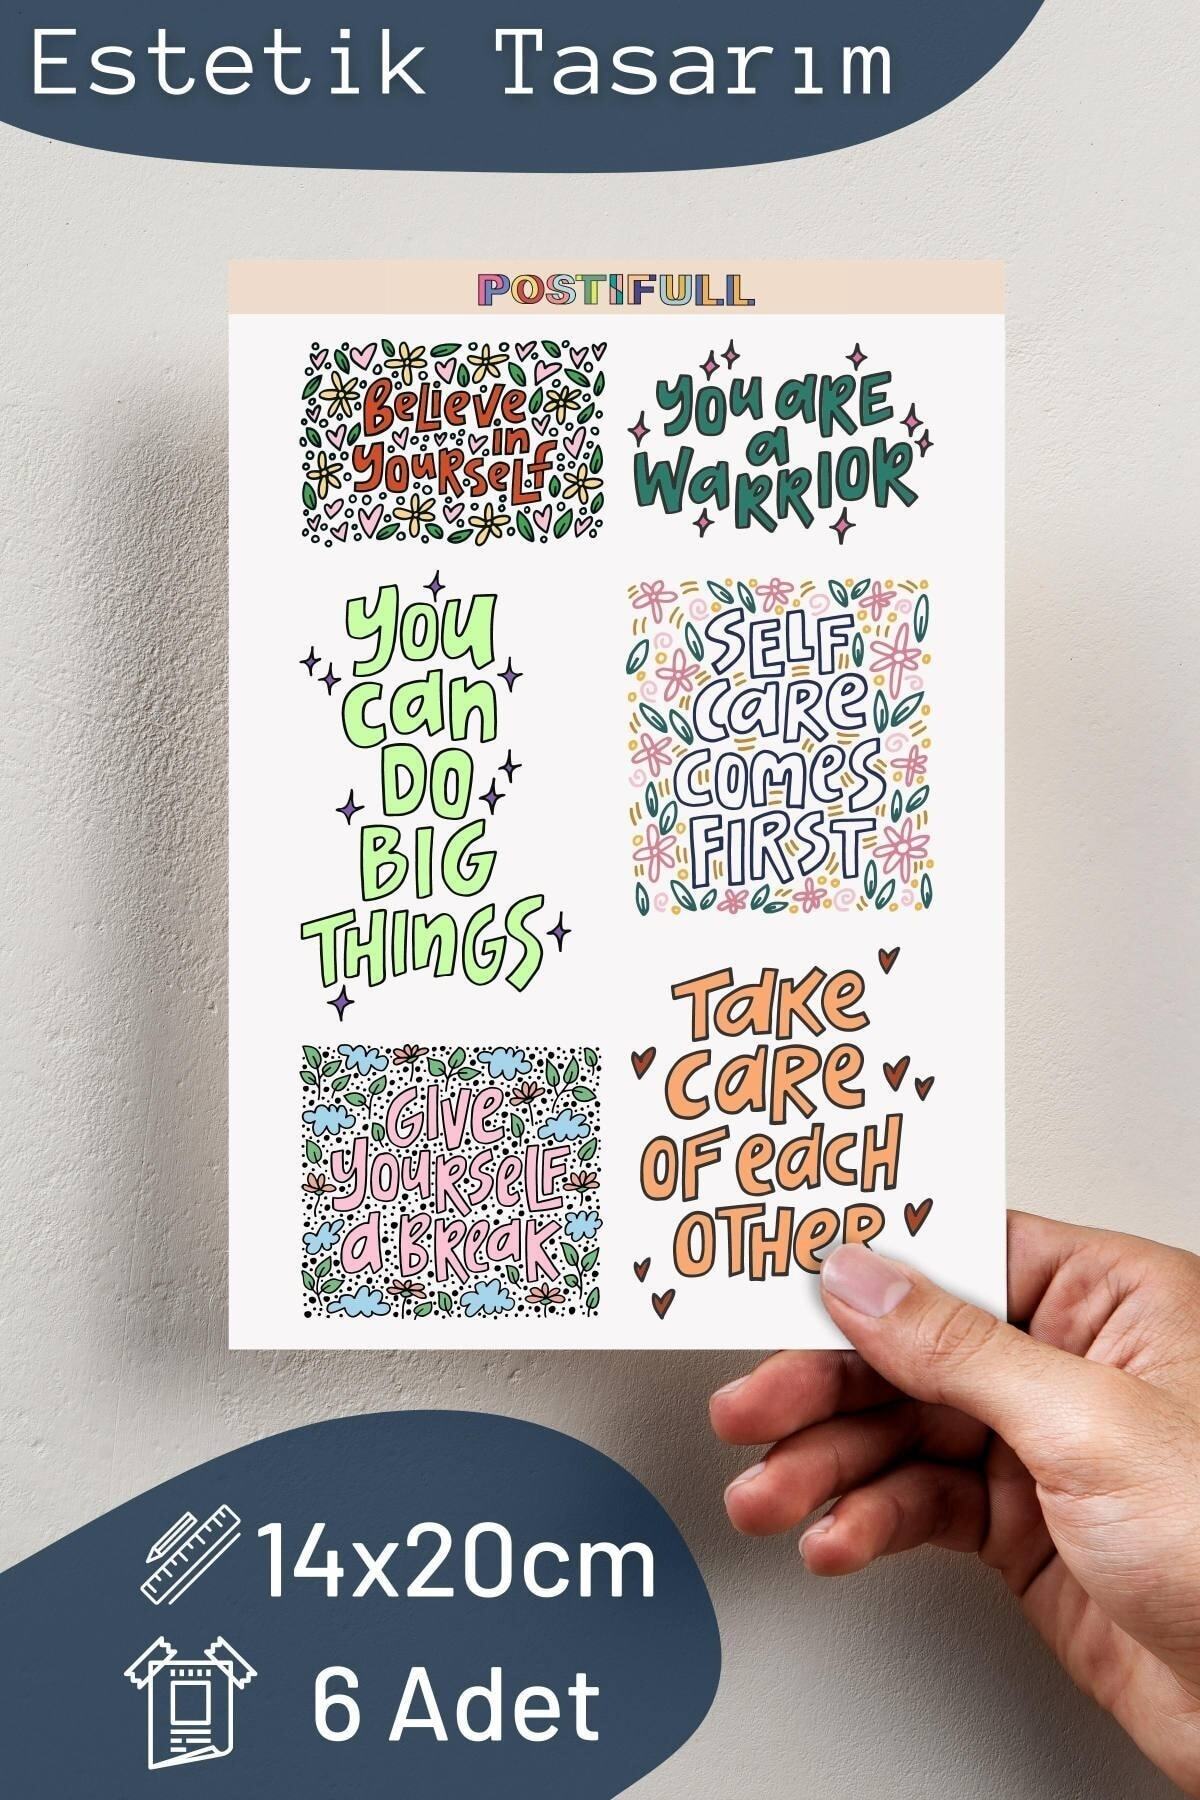 Estetik Tasarım
POSTIFULL
Believe
in
Yourself
You are
a
Warrior
You
can
Do
BIG
THINGS
SELF
Care
comes
FIRST
Give
Yourself
a Break
Take
care
of each
other
14x20cm
6 Adet